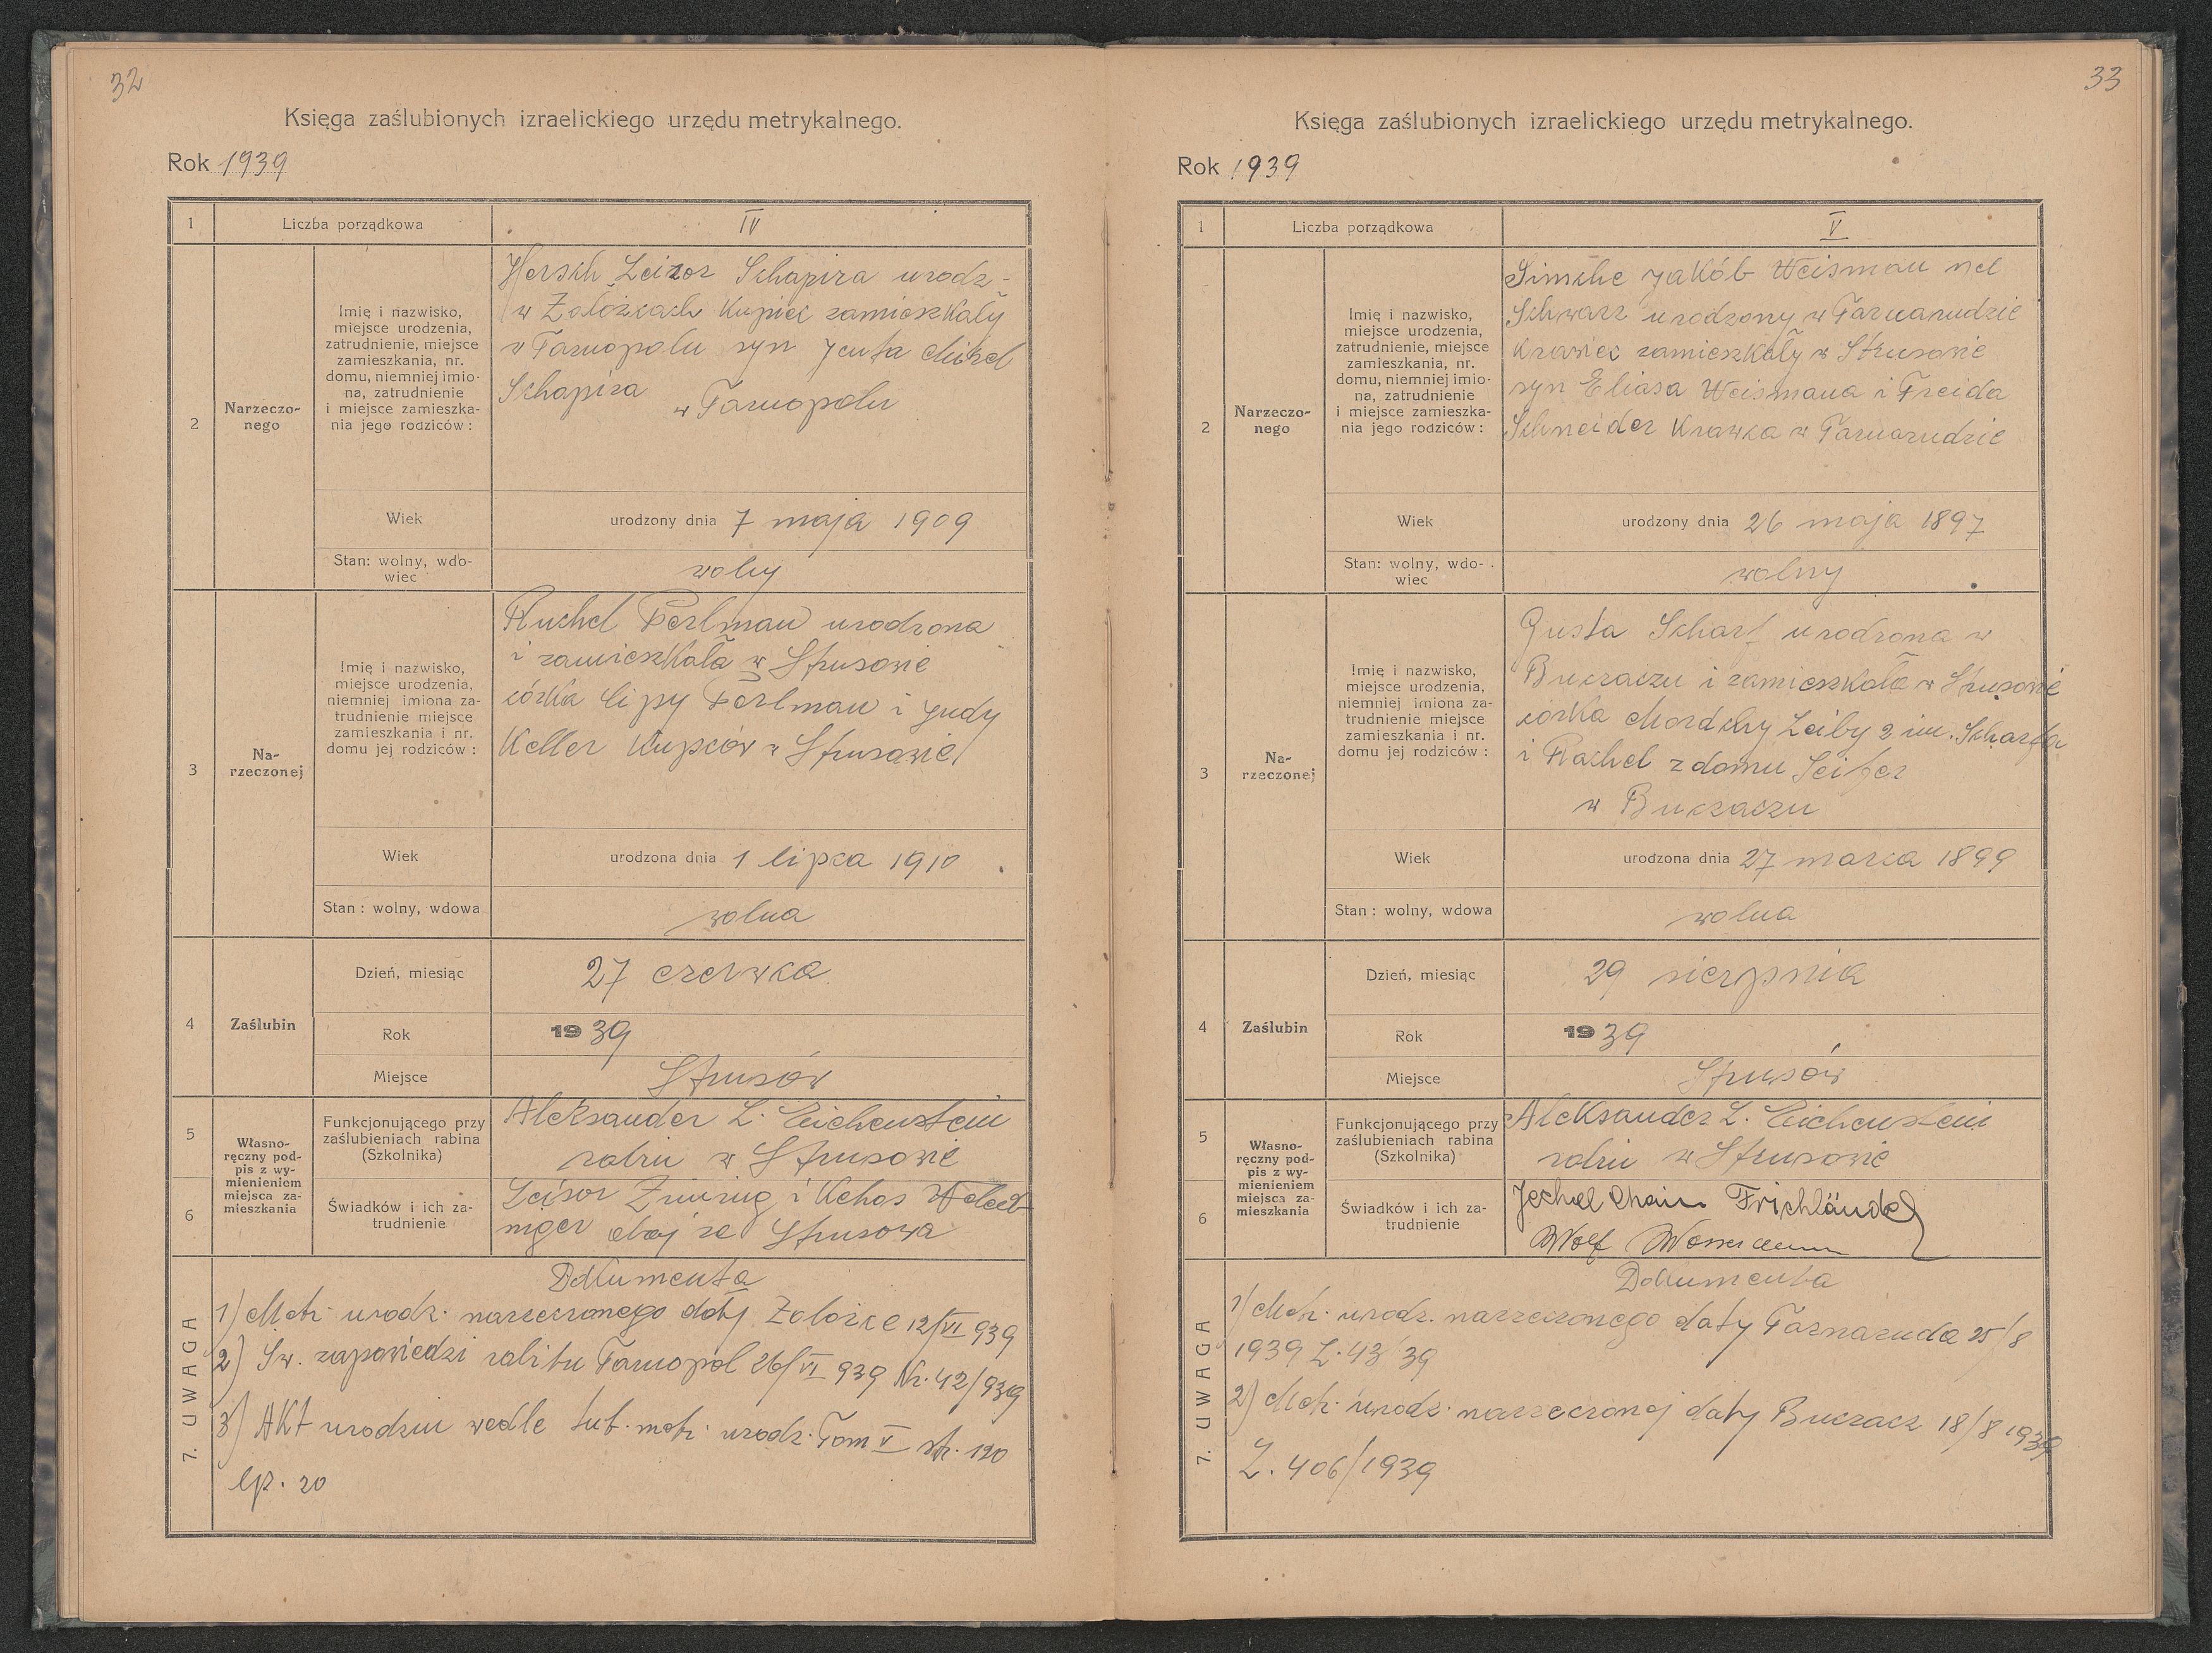 32
Księga zaślubionych izraelickiego urzędu metrykalnego.
Rok 1939
1
Liczba porządkowa
IV
2
Narzeczo-
nego
Imię i nazwisko,
miejsce urodzenia,
zatrudnienie, miejsce
zamieszkania, nr.
domu, niemniej imio-
na, zatrudnienie
i miejsce zamieszka-
nia jego rodziców :
Hersch Leizor Schapira urodz-
w Załoźcach Kupiec zamieszkały
w Tarnopolu syn Jenta
Schapira w Tarnopolu
Wiek
urodzony dnia 7 maja 1909
Stan: wolny, wdo-
wiec
wolny
3
Na-
rzeczonej
Imię i nazwisko,
miejsce urodzenia,
niemniej imiona za-
trudnienie miejsce
zamieszkania i nr.
domu jej rodziców :
Ruchel Perlman urodzona
i zamieszkała w Strusowie
córka Lipy Perlman i Judy
Keller Kupców w Strusowie
Wiek
urodzona dnia 1 lipca 1910
Stan : wolny, wdowa
wolna
4
Zaślubin
Dzień, miesiąc
27 czerwca
Rok
1939
Miejsce
Strusów
5
6
Własno-
ręczny pod-
pis z wy-
mienieniem
miejsca za-
mieszkania
Funkcjonującego przy
zaślubieniach rabina
(Szkolnika)
Aleksander L. Eichenstein
rabin w Strusowie
Świadków i ich za-
trudnienie
Leisor i
obaj ze Strusowa
7. UWAGA
Dokumenta
1) Metr. urodz. narzeczonego daty Załoźce 12/VI 939
2) Św. zapowiedzi rabinu Tarnopol 26/VI 939 Nr. 42/939
3) Akt urodzin wedle tut. metr. urodz. Tom V str. 120
lp. 20
33
Księga zaślubionych izraelickiego urzędu metrykalnego.
Rok 1939
1
Liczba porządkowa
V
2
Narzeczo-
nego
Imię i nazwisko,
miejsce urodzenia,
zatrudnienie, miejsce
zamieszkania, nr.
domu, niemniej imio-
na, zatrudnienie
i miejsce zamieszka-
nia jego rodziców :
Simche Jakób Weisman vel
Schwarz urodzony w Tarnarudzie
Krawiec zamieszkały w Strusowie
syn Eliasa Weismana i Freida
Schneider Krawca w Tarnarudzie
Wiek
urodzony dnia 26 maja 1897
Stan: wolny, wdo-
wiec
wolny
3
Na-
rzeczonej
Imię i nazwisko,
miejsce urodzenia,
niemniej imiona za-
trudnienie miejsce
zamieszkania i nr.
domu jej rodziców :
Gusta Scharf urodzona w
Buczaczu i zamieszkała w Strusowie
córka Mordchy Leiby 2 im. Scharfa
i Rachel z domu Seifer
w Buczaczu
Wiek
urodzona dnia 27 marca 1899
Stan : wolny, wdowa
wolna
4
Zaślubin
Dzień, miesiąc
29 sierpnia
Rok
1939
Miejsce
Strusów
5
6
Własno-
ręczny pod-
pis z wy-
mienieniem
miejsca za-
mieszkania
Funkcjonującego przy
zaślubieniach rabina
(Szkolnika)
Aleksander L. Eichenstein
rabin w Strusowie
Świadków i ich za-
trudnienie
Jechel Chaim Frichländer
Wolf Wasserman
7. UWAGA
Dokumenta
1) Metr. urodz. narzeczonego daty Tarnaruda 25/8
1939 L. 43/39
2) Metr. urodz. narzeczonej daty Buczacz 18/8 1939
L. 406/1939